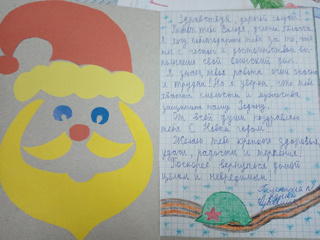 Здравствуй, дорогой солдат!
Пишет тебе
Я хочу поблагодарить тебя за то, что
ты с честью и достоинством вы-
полняешь свой воинский долг.
Я знаю, твоя работа очень опасна
и трудна! Но я уверен, что тебе
хватит смелости и мужества
защищать нашу Родину.
От всей души поздравляю
тебя с Новым годом.
Желаю тебе крепкого здоровья,
удачи, радости и терпения.
Поскорее вернуться домой
целым и невредимым.